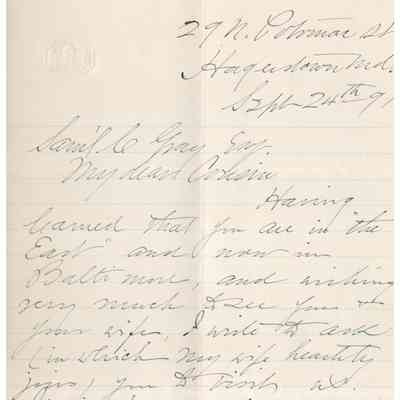 29 N. Potomac st
Hagerstown Md.
Sept 24th 91
Sam'l C Gray Esq.
My dear Cousin
Having
learned that you are in "the
East" and now in
Baltimore, and wishing
very much to see you &
your wife, I write to ask
(in which my wife heartily
joins) you to visit us.